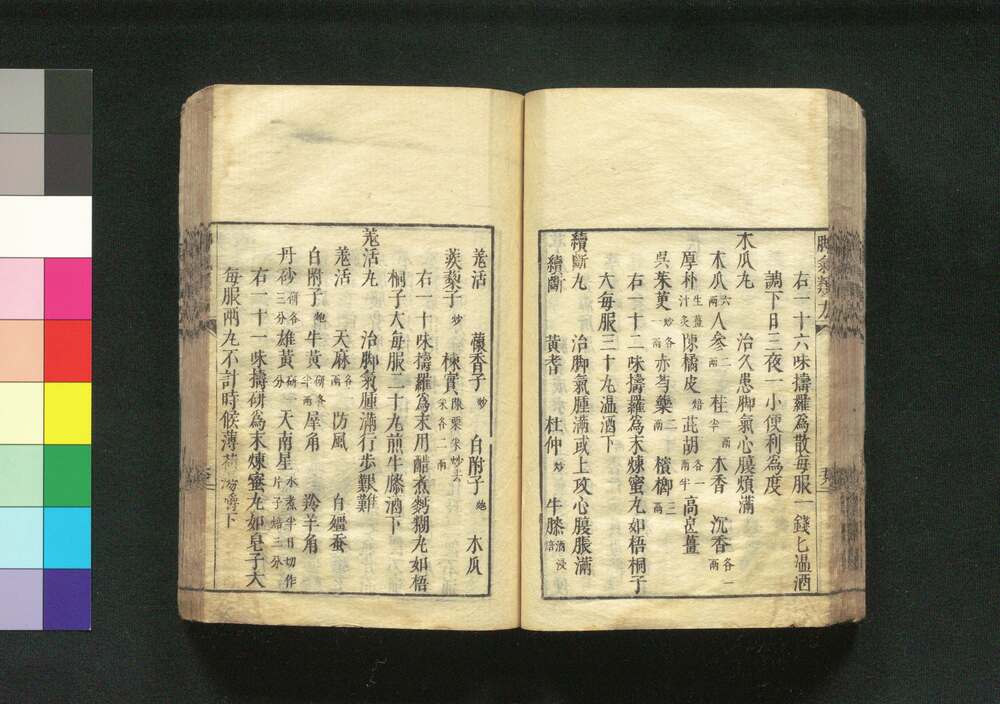 右一十六味擣羅爲散每服一錢匕温酒
調下日三夜一小便利爲度
木瓜丸　治久患脚氣心腹煩滿
木瓜六兩 人參二兩 桂半兩 木香 沉香各一兩
厚朴生薑汁炙 陳橘皮焙 茈胡各一兩半 高良薑
吳茱萸炒各一兩 赤芍藥二兩 檳榔三兩
右一十二味擣羅爲末煉蜜丸如梧桐子
大每服三十丸温酒下
續斷丸　治脚氣腫滿或上攻心腹脹滿
續斷　黃耆　杜仲炒　牛膝酒浸焙
羌活　蘹香子炒　白附子炮　木瓜
蒺藜子炒　楝實
右一十味擣羅爲末用醋煮麪糊丸如梧
桐子大每服二十丸煎牛膝酒下
羌活丸　治脚氣腫滿行步艱難
羌活　天麻各一兩　防風　白殭蚕
白附子炮 牛黃研各半兩 犀角　羚羊角
丹砂研各三分 雄黃研一分 天南星水煮半日切作片子焙三分
右一十一味擣研爲末煉蜜丸如皂子大
每服兩丸不計時候薄荷湯嚼下